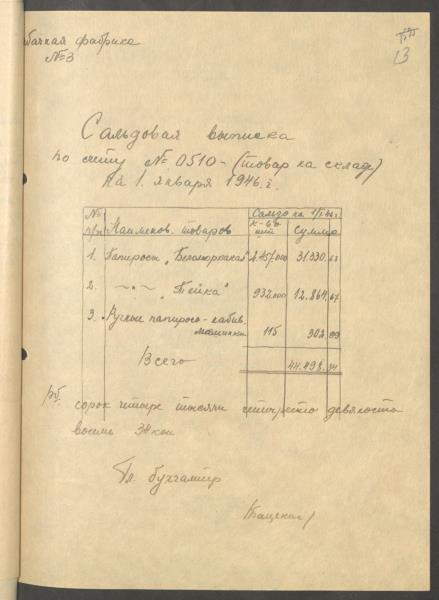 бачная фабрика
№3
13
Сальдовая выписка
по счету № 0510 - (товар на складе)
На 1. января 1946.г.
№ п/п Наименов. товаров Сальдо на 1/I 46г.
к-во Сумма
1. Папиросы „Беломорканал" 2.457.000 31330.63
2. —"— „Тейка" 932.000 12.864.67
3. Ручные папиросо-набив.
машинки 115 302.99
Всего 44.498.34
сорок четыре тысячи четыреста девяносто
восемь 34 коп
Гл. бухгалтер